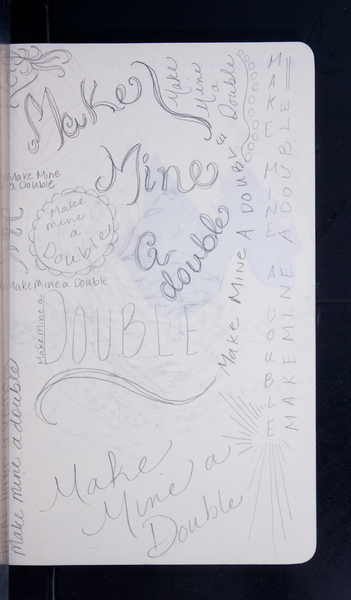 Make
Mine
a
double
Make
Mine
a
Double
Make Mine
a Double
Make
mine
a
Double
Make Mine a Double
Make Mine a
DOUBLE
make mine a double
Make Mine A Double
MAKE MINE A DOUBLE
MAKE MINE A DOUBLE
Make
Mine a
Double